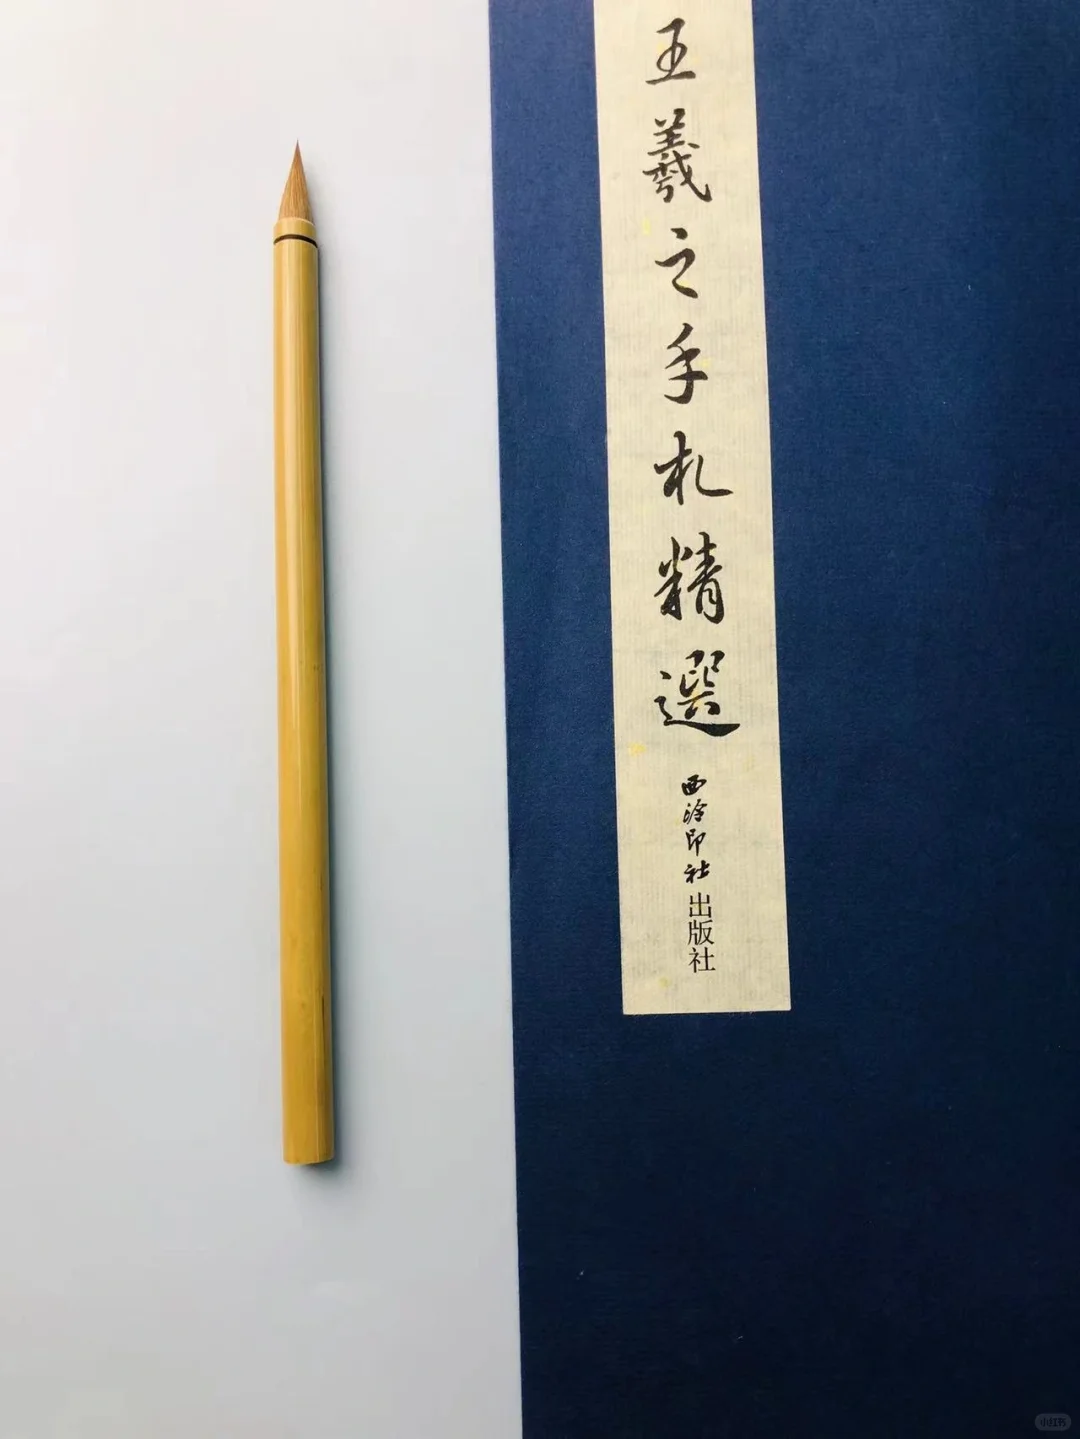 王羲之手札精選
西泠印社出版社
小红书